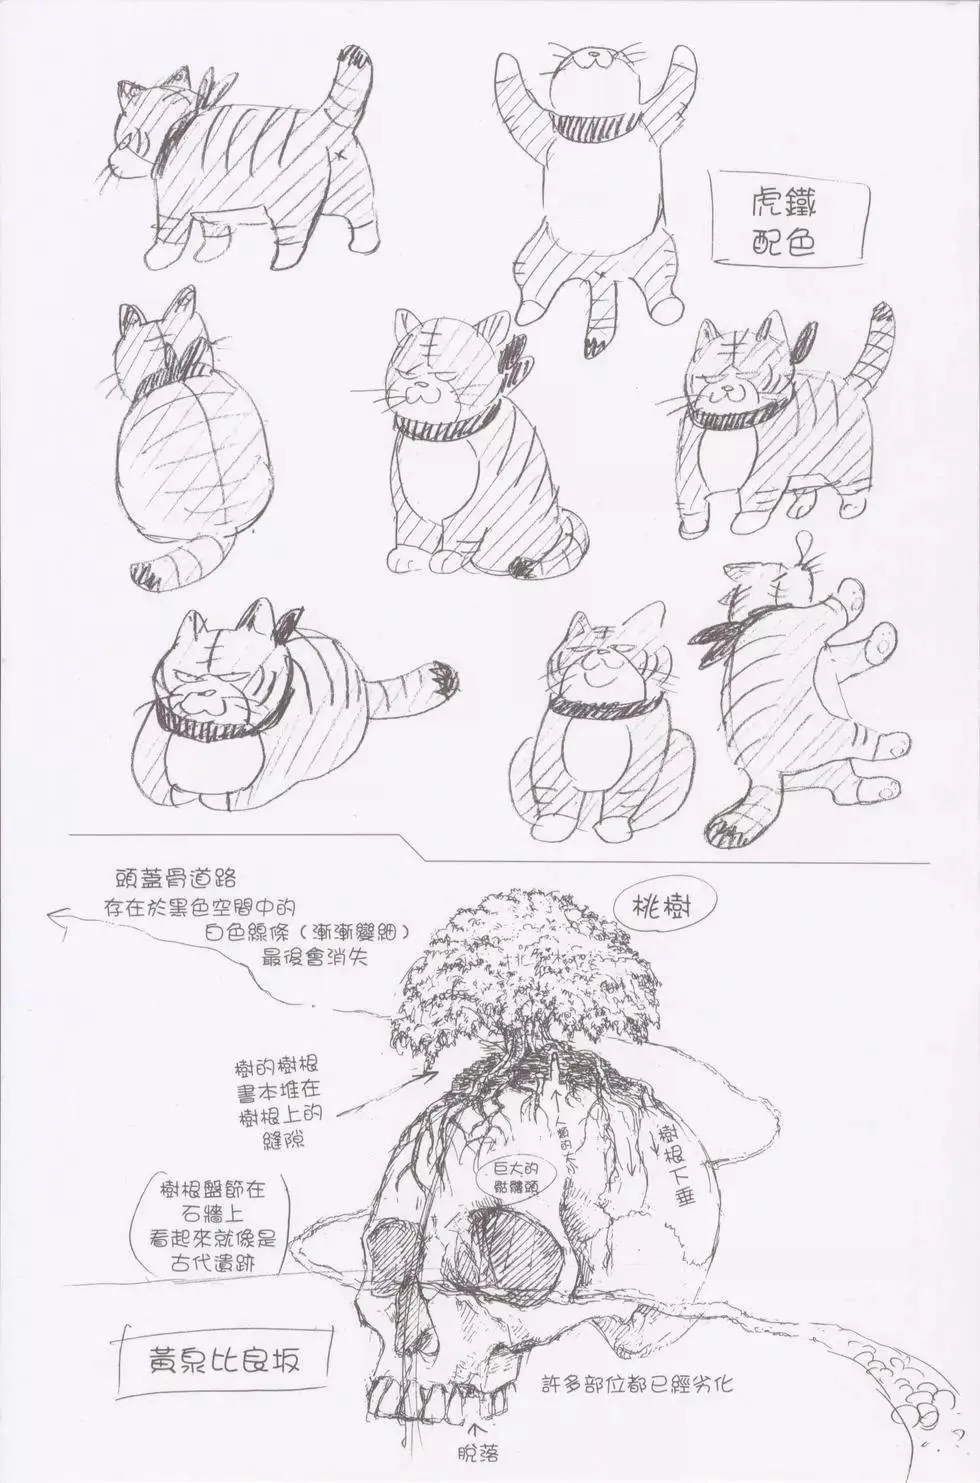 虎鐵
配色
頭蓋骨道路
存在於黑色空間中的
白色線條（漸漸變細）
最後會消失
桃樹
樹的樹根
書本堆在
樹根上的
縫隙
樹根下垂
巨大的
骷髏頭
樹根盤節在
石牆上
看起來就像是
古代遺跡
黃泉比良坂
許多部位都已經劣化
脫落